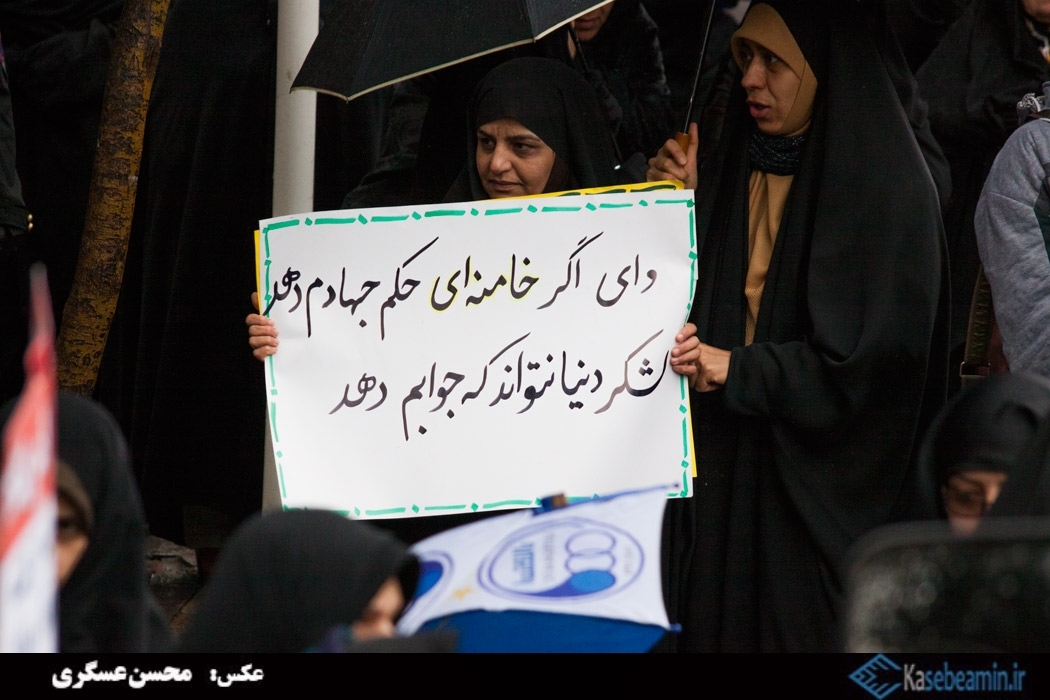 وای اگر خامنه‌ای حکم جهادم دهد
لشکر دنیا نتواند که جوابم دهد
عکس: محسن عسگری
Kasebeamin.ir